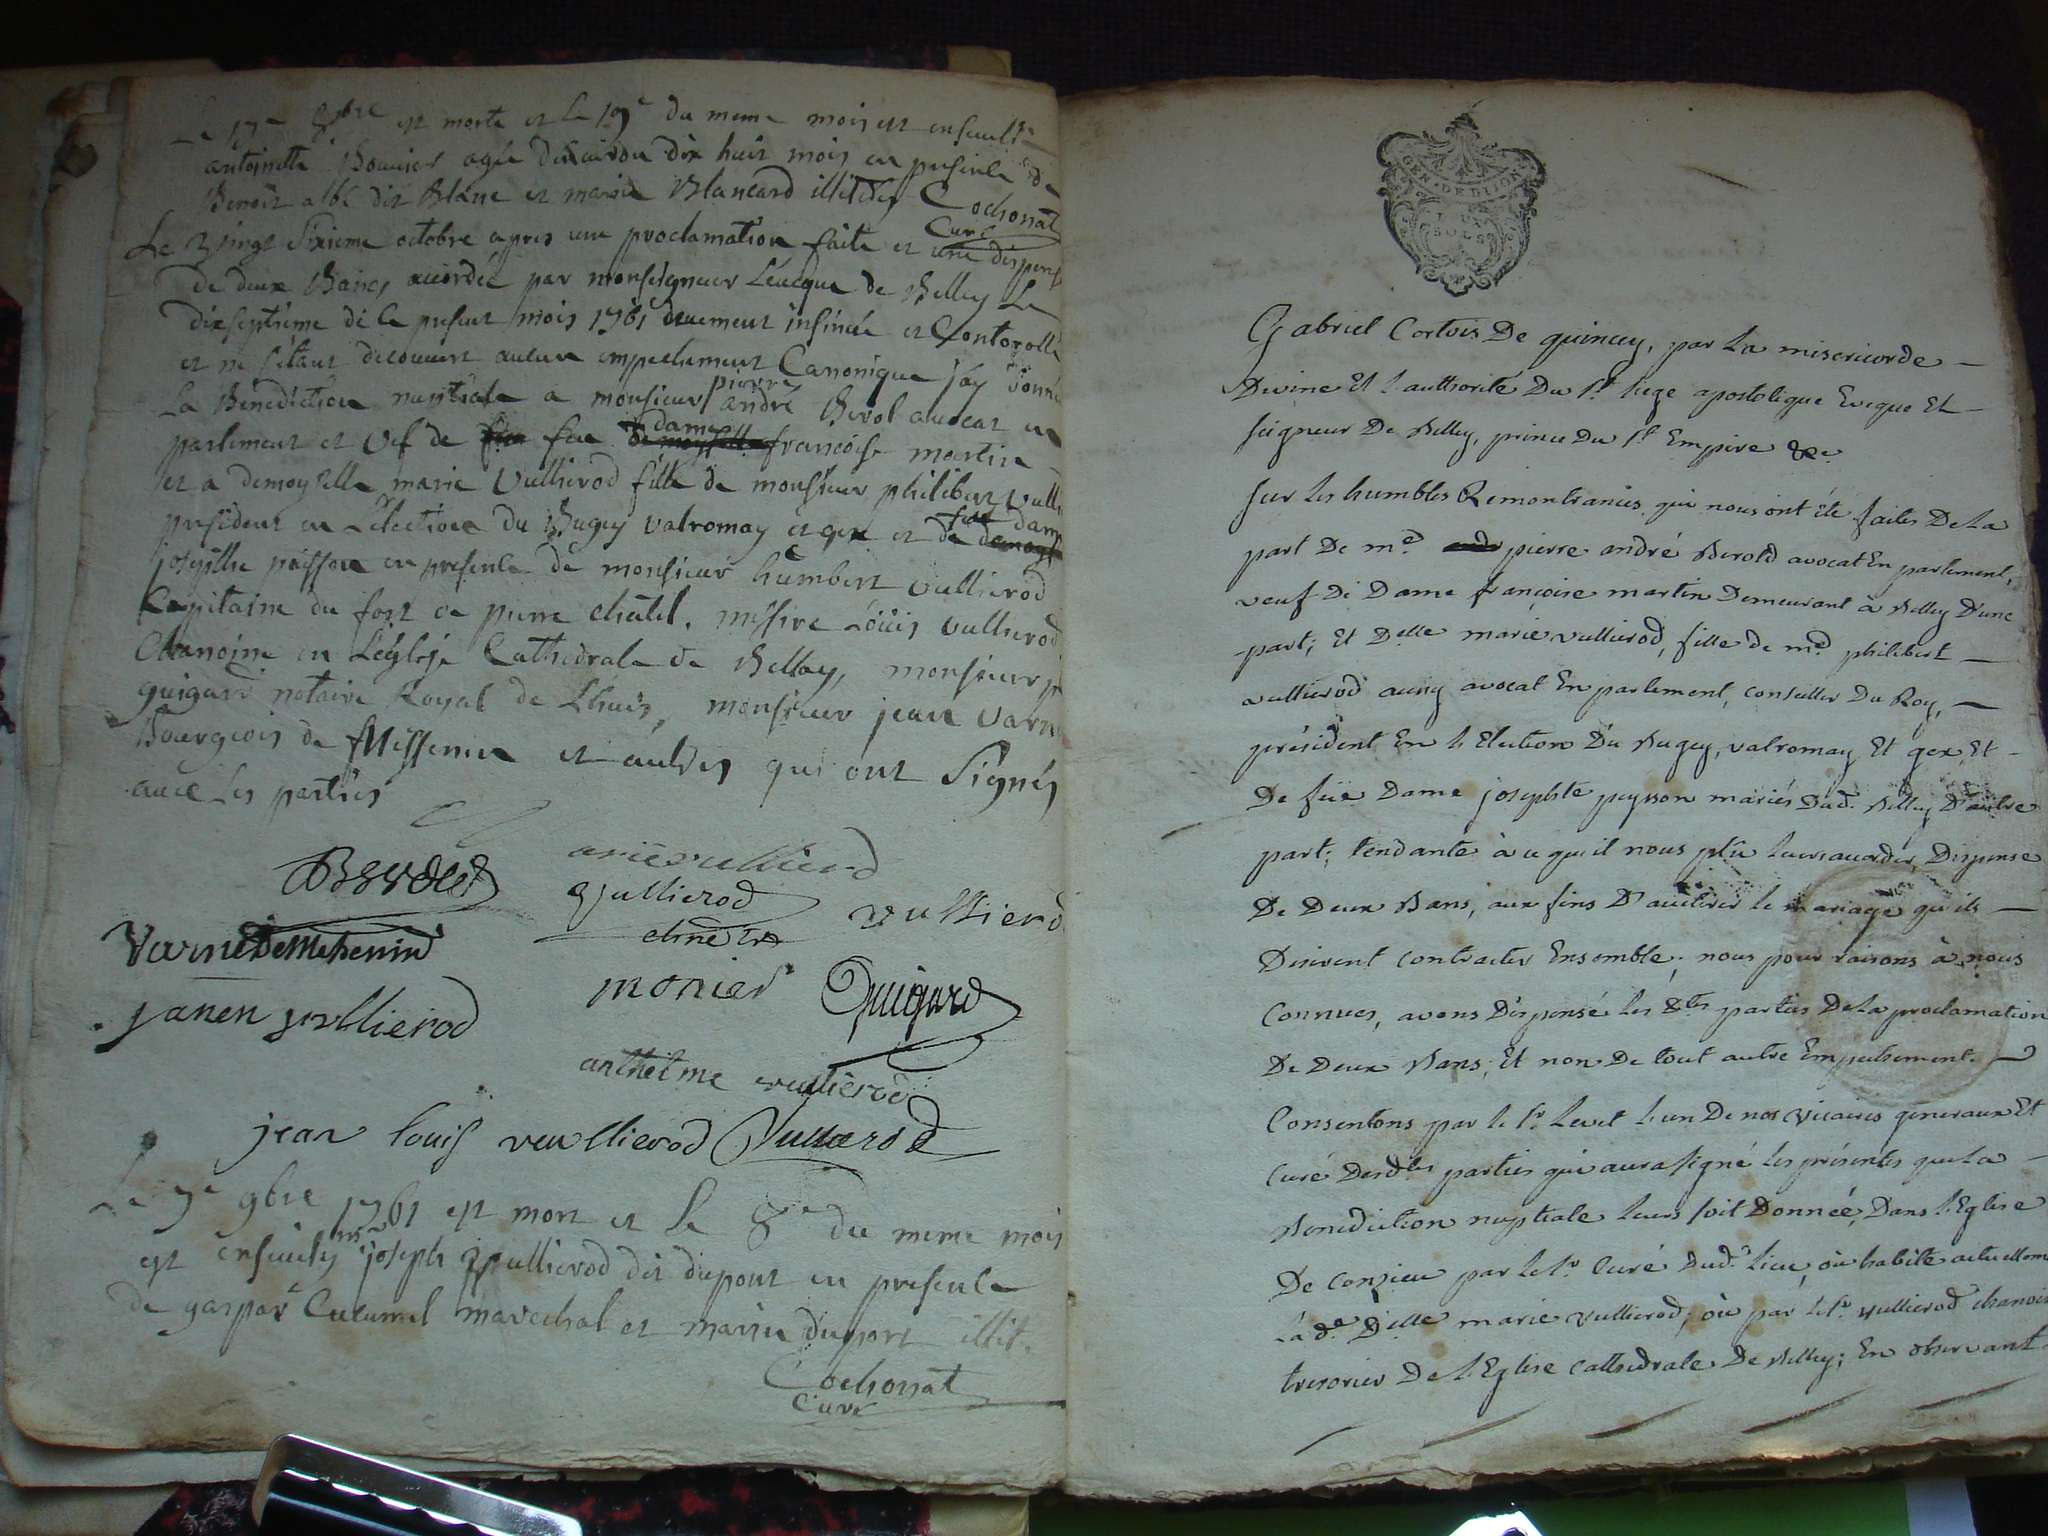 Le 17e 8bre est morte et le 19e du meme mois est enseveli
antoinette Bouvier agée denviron dix huit mois en presence de
Benoit albe dit Blanc et marie Blancard illitdes Cochonat
Curé
Le vingt sixieme octobre apres une proclamation faite et une dispense
de deux Bancs accordée par monseigneur Léveque de Belley Le
dixseptieme de ce present mois 1761 duement insinuée et Controllé
et ne s'etant decouvert aucun empechement Canonique j'ay donné
La Benediction nuptiale a monsieur pierre andré Berol avocat en
parlement et vef de feu dame françoise martin
et a demoyselle marie Vullierod fille de monsieur philibert vulli
president en L'election du Bugey valromay et gex et de feue dame
josephte peisson en presence de monsieur humbert vullierod
Capitaine du fort de pierre chatel, messire Louis vullierod
Chanoine en Leglise Cathedrale de Belley, monsieur
guigard notaire Royal de Lhuis, monsieur jean varn
Bourgeois de Meyssenin et autres qui ont Signés
avec les parties
Berold
arie vullierod
Vullierod
chne tr
vullierod
Varnet De Messenin
monier
Guigard
janen vullierod
anthelme vullierod
jean louis veullierod Vullierod
Le 7e 9bre 1761 est mort et le 8e du meme mois
est enseveli mr joseph Vullierod dit dupont en presence
de gaspar Cucumel marechal et marie dupont illit.
Cochonat
Curé
GEN. DE DIJON
DEUX
SOLS
Gabriel Cortois De quincey, par La misericorde
Divine Et l'authorité Du St. siege apostolique Eveque Et
seigneur De Belley, prince Du St. Empire &c.
sur les humbles Remontrances qui nous ont été faites De La
part De me. pierre andré Berold avocat En parlement,
veuf De Dame françoise martin Demeurant à Belley D'une
part; Et Delle marie vullierod, fille de me. philibert
vullierod aussy avocat En parlement, conseiller Du Roy,
président En l'Election Du Bugey, valromay Et gex, Et
De feüe Dame josephte peysson mariés Dud. Belley, D'autre
part, tendante à ce qu'il nous plû leurs accorder Dispense
De Deux Bans, aux fins D'accelerer le mariage qu'ils
Desirent contracter Ensemble; nous pour raisons à nous
Connues, avons Dispensé les dtes parties De La proclamation
De Deux Bans, Et non De tout autre Empechement.
Consentons par le sr. Levet l'un De nos vicaires generaux Et
Curé Desdtes parties qui aura signé les présentes que La
Benediction nuptiale leurs soit Donnée, Dans l'Eglise
De Conzieu par le sr. Curé Dud. lieu, où habite actuellem
La de. Delle marie vullierod, où par le sr. vullierod chanoin
tresorier De l'Eglise cathedrale De Belley; En observant